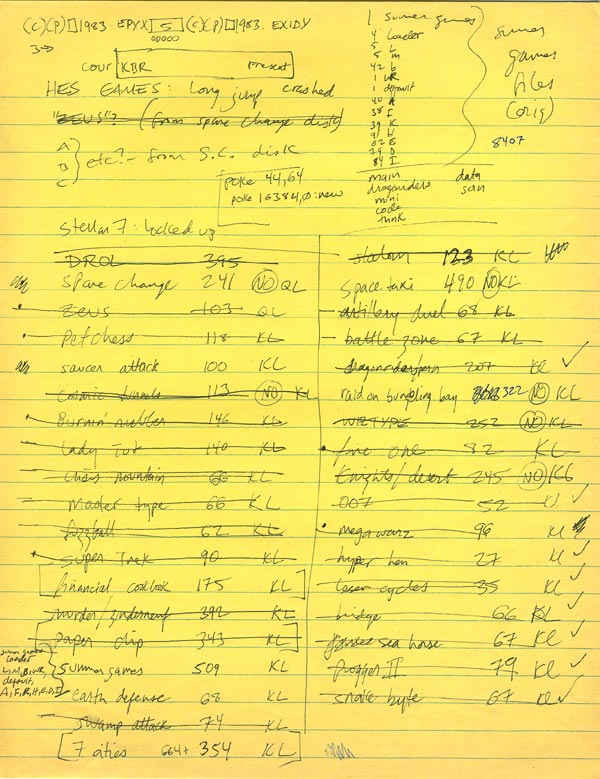 (C)(P) 1983 EPYX 5 (C)(P) 1983. EXIDY
3→
COUR KBR PRESENT
HES GAMES: Long jump crashed
"ZEUS"? (from spare change disk)
A
B
C
etc?- from S.C. disk
poke 44,64
poke 16384,0:new
Stellar 7: locked up
1 summer games
4 loader
5 L
5 m
42 b
1 WR
1 default
40 A
38 I
39 K
91 H
62 E
79 D
84 I
summer
games
files
(orig)
8407
main
dragonriders
mini
code
data
scrn
DROL 395
spare change 241 NO QL
Zeus 103 QL
Petchess 118 KL
saucer attack 100 KL
cosmic tunnels 113 NO KL
Burnin' rubber 146 KL
Lady Tut 140 KL
Chis mountain 66 KL
Master type 66 KL
fuzzball 62 KL
Super Trek 90 KL
financial cookbook 175 KL
murder/zinderneuf 392 KL
paper clip 343 KL
summer games 509 KL
earth defense 68 KL
swamp attack 74 KL
7 cities 664+ 354 KL
summer games
loader
L, M, B, WR,
default,
slalom 123 KL
space taxi 490 NO KL
artillery duel 68 KL
battle zone 67 KL
dragonriders/pern 207 KL ✓
raid on bungling bay 322 NO KL
WIZTYPE 252 NO KL
fire one 82 KL
Knights/desert 245 NO KL
007 52 KL ✓
megawarz 96 KL
hyper hen 27 KL ✓
laser cycles 35 KL ✓
bridge 66 KL ✓
sea horse 67 KL ✓
frogger II 79 KL ✓
snake byte 67 KL ✓